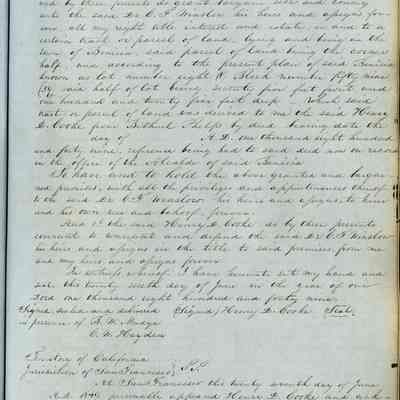 and by these presents do grant bargain sell and convey
unto the said Dr. C. F. Winslow his heirs and assigns for-
ever all my right title interest and estate in and to a
certain tract or parcel of land, lying and being in the
town of Benicia said parcel of land being the corner
half, and according to the present plan of said Benicia
known as lot number eight (8) Block number fifty nine
(59) said half of lot being seventy five feet front and
one hundred and twenty five feet deep - which said
tract or parcel of land was devised to me the said Henry
D. Cooke from Bethuel Phelps by deed bearing date the
day of A.D. one thousand eight hundred
and forty nine, reference being had to said deed now on record
in the office of the Alcalde of said Benicia
To have and to hold the above granted and bargai-
ned premises, with all the priviliges and appurtenances thereof
to the said Dr. C. F. Winslow his heirs and assigns, to his
and his own use and behoof forever.
And I the said Henry D. Cooke do by these presents
covenant to warrant and defend the said Dr. C. F. Winslow
his heirs and assigns in the title to said premises from me
and my heirs and assigns forever
In witness whereof I have hereunto set my hand and
seal this twenty sixth day of June in the year of our
Lord one thousand eight hundred and forty nine.
Signed, sealed and delivered (Signed) Henry D. Cooke Seal
in presence of A. W. Mudge
C. W. Hayden
Territory of California
Jurisdiction of San Francisco S.S.
At San Francisco this twenty seventh day of June
A.D. 1849 personally appeared Henry D. Cooke and